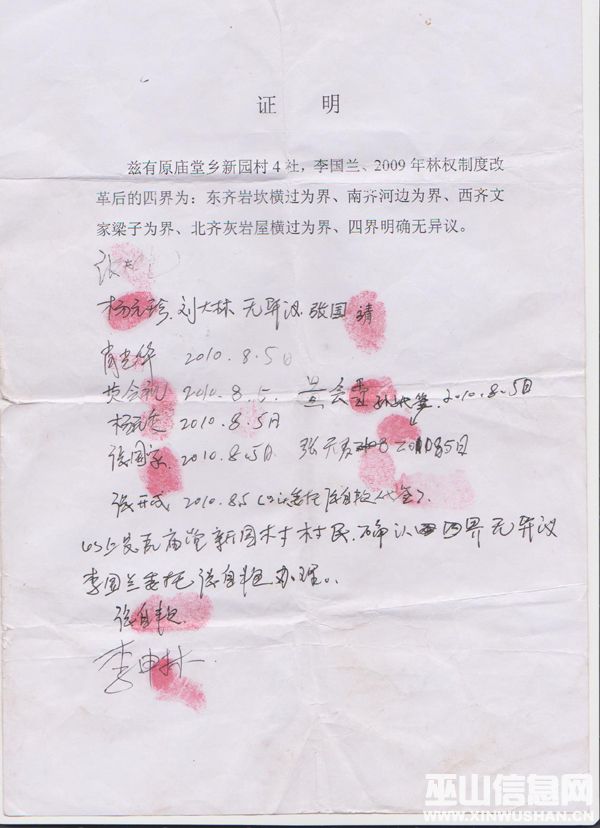 证 明
兹有原庙堂乡新园村4社，李国兰、2009年林权制度改
革后的四界为：东齐岩坎横过为界、南齐河边为界、西齐文
家梁子为界、北齐灰岩屋横过为界、四界明确无异议。
张
杨元珍、刘大林 无异议 张国靖
肖 华 2010.8.5日
黄会礼 2010.8.5. 黄会 代签.2010.8.5日
杨 2010.8.5日
张国 2010.8.5日 张 5日
张开成 2010.8.5 (以委托张自 代签).
以上是 庙堂新园村村民,确认四界无异议
李国兰委托张自 办理..
张自
李申林
巫山信息网
WWW.XINWUSHAN.CN